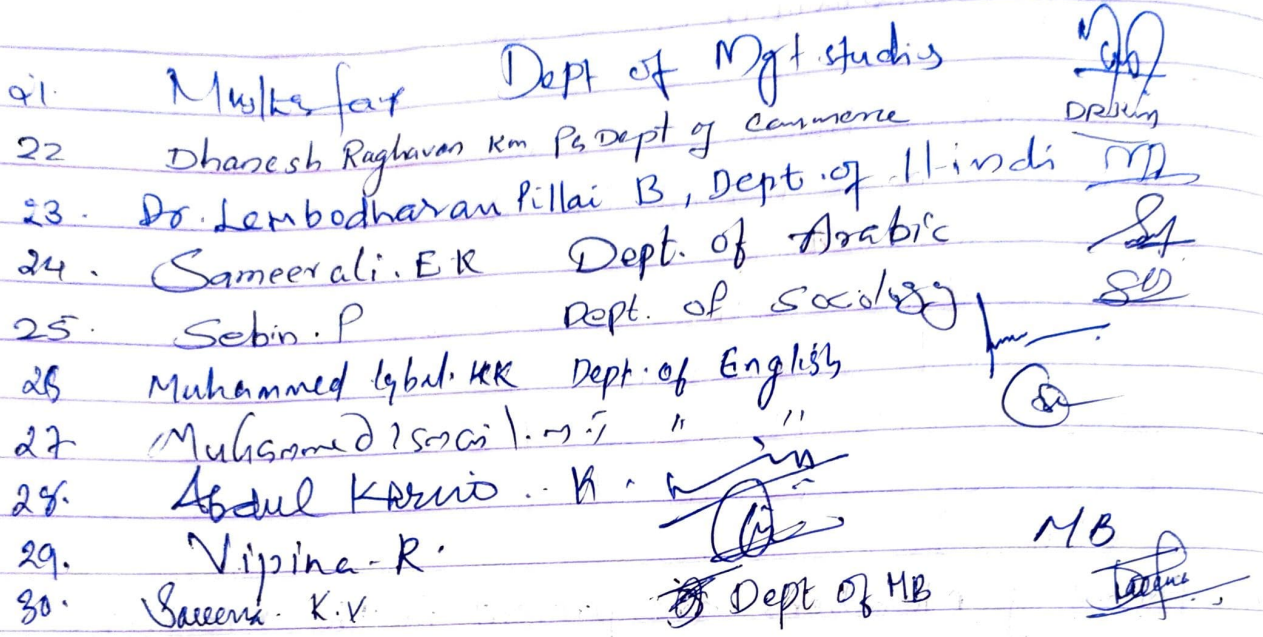 21. Dept of Mgt. studies
22 Dhanesh Raghavan Km PG Dept of Commerce
23. Dr. Lembodharan Pillai B, Dept. of Hindi
24. Sameerali. E K Dept. of Arabic
25. Sebin. P Dept. of Sociology
26 Muhammed Iqbal. KK Dept. of English
27 Muhammed Ismail. " "
28. Abdul Karim. K.
29. Vipina. R. MB
30. K.V. Dept of MB